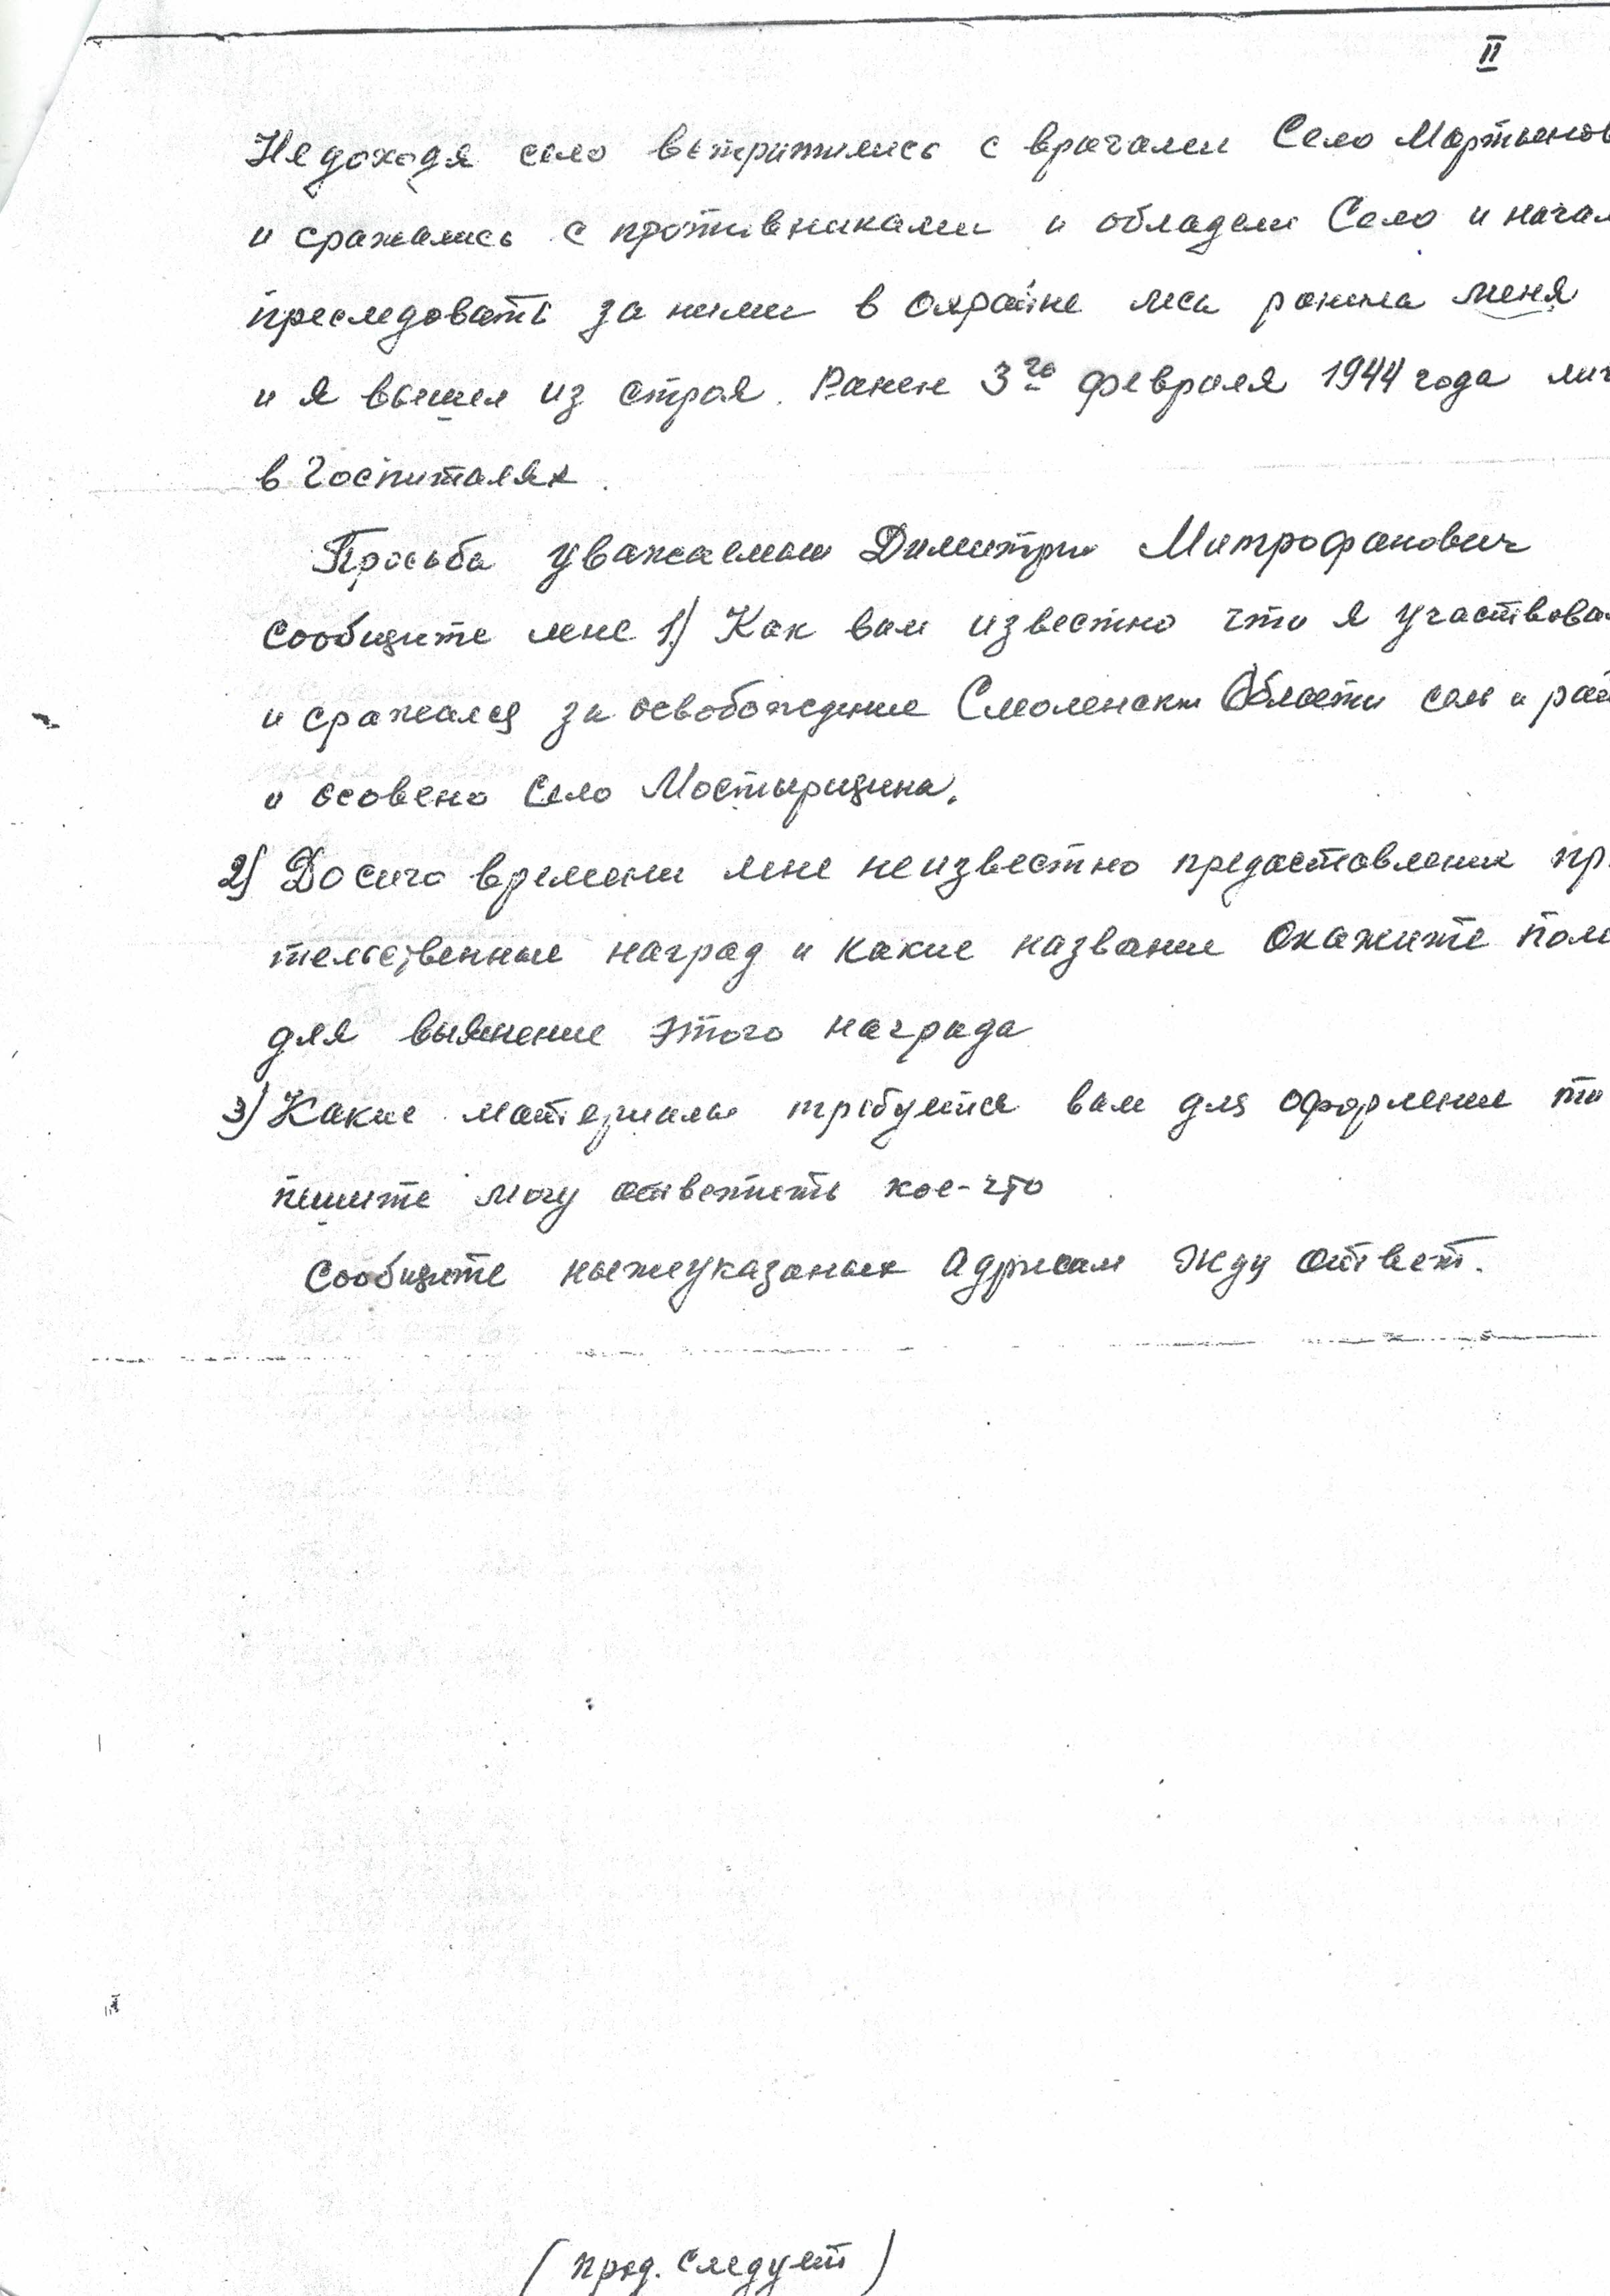 II
Недоходя село встритились с врагами Село Мартынов
и сражались с противниками и обладели Село и начал
преследовать за ними в Окрайне леса ранила меня
и я вышел из строя. Ранен 3го февраля 1944 года
в Госпиталях.
Просьба уважаемыи Димитри Митрофанович
сообщите мне 1) Как вам известно что я участвова
и сражался за освобождение Смоленски Области сел и рай
и осовено Село Мостырщина.
2) До сиго времени мне неизвестно предоставлении пр
тельственные наград и какие название Окажите пом
для выянение этого награда
3) Какие материалы трибуется вам для оформление
пишите могу ответить кое-что
Сообщите нижеуказаных Адрисам Жду ответ.
(прод. следует)